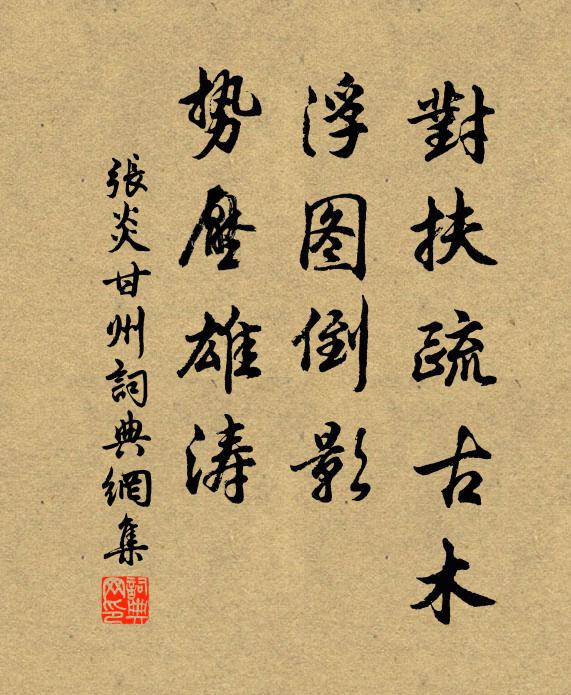 對扶疏古木
浮图倒影
势壓雄涛
張炎甘州詞典網集
詞典网印